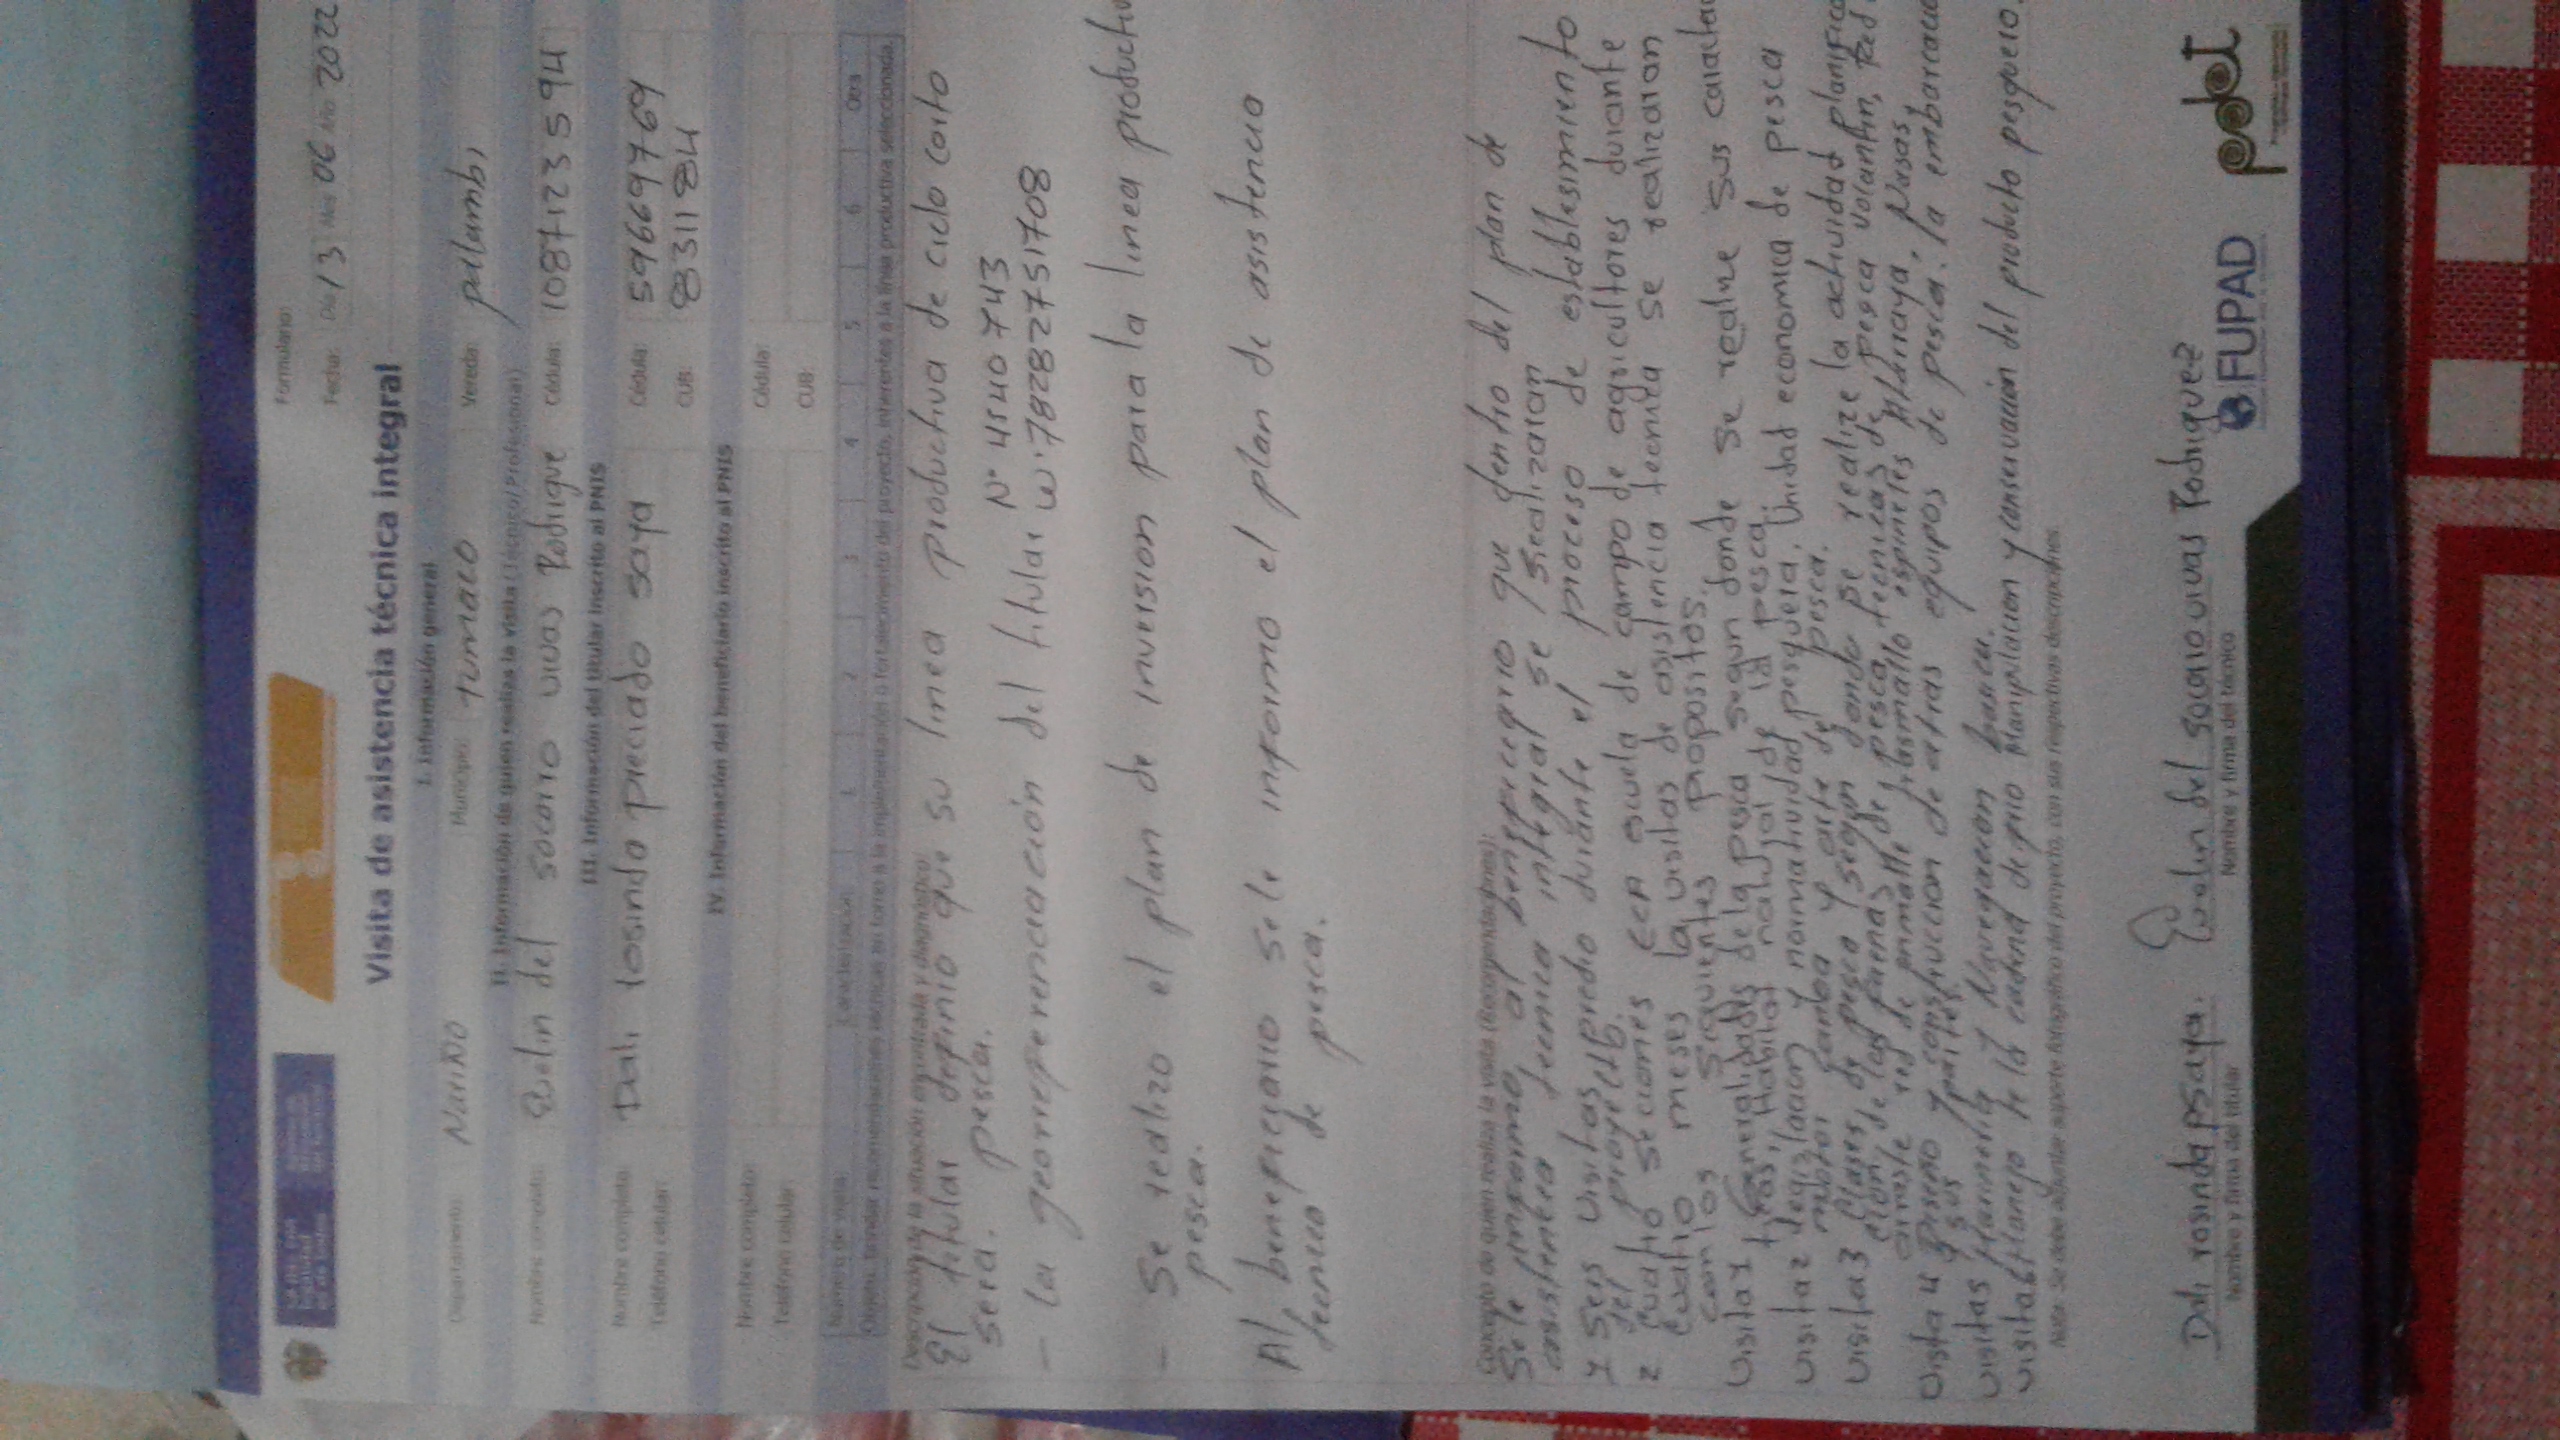 Formulario:
Fecha: Día 13 Mes 06 Año 2022
Visita de asistencia técnica integral
I. Información general
Departamento: Nariño Municipio: tumaco Vereda: pallambi
II. Información de quien realiza la visita (Técnico/Profesional)
Nombre completo: Evelin del socorro vivas Rodrigue Cédula: 1087123594
III. Información del titular inscrito al PNIS
Nombre completo: Dali rosinda preciado saya Cédula: 59669769
Teléfono celular: CUB: 831184
IV. Información del beneficiario inscrito al PNIS
Nombre completo: Cédula:
Teléfono celular: CUB:
Número de visita: Caracterización 1 2 3 4 5 6 Otra
Objeto: brindar recomendaciones técnicas en torno a la implementación o fortalecimiento del proyecto, inherentes a la línea productiva seleccionada.
Descripción de la situación encontrada y diagnóstico:
El titular definio que su linea productiva de ciclo corto
sera. pesca.
- la georreferenciación del titular N° 4540743
W: 78282751708
- Se realizo el plan de inversion para la linea productiv
pesca.
Al beneficiario se le informo el plan de asistencia
tecnica de pesca.
Concepto de quien realiza la visita (Recomendaciones):
Se le informo al beneficiario que dentro del plan de
asistencia tecnica integral se realizaran
y seis visitas predio durante el proceso de establesimiento
del proyecto.
2 cuatro secciones ECA escuela de campo de agricultores durante
cuatro meses la visitas de asistencia tecnica se realizaran
con los siguientes propositos.
visita 1 Generalidades de la pesca segun donde se realice sus caracteri
habitat natural de la pesca.
visita 2 legislacion y normatividad pesquera, Unidad economica de pesca
motor canoa y arte de pesca.
visita 3 donde se realize la actividad planifica
de las faenas de pesca tecnicas de pesca volantin, red
red de enmalle trasmallo espineles Atarraya, Nasas
vista 4 Diseño y construccion de artes equipos de pesca. la embarcacio
y sus partes.
visita 5 Marineria y Navegacion basica.
visita 6 Manejo de la cadena de frio Manipulacion y conservacion del producto pesquero.
Nota: Se debe adjuntar soporte fotográfico del proyecto, con sus respectivas descripciones
Dali rosinda P Saya. Evelin del socorro vivas Rodriguez
Nombre y firma del titular Nombre y firma del técnico
FUPAD
pdet